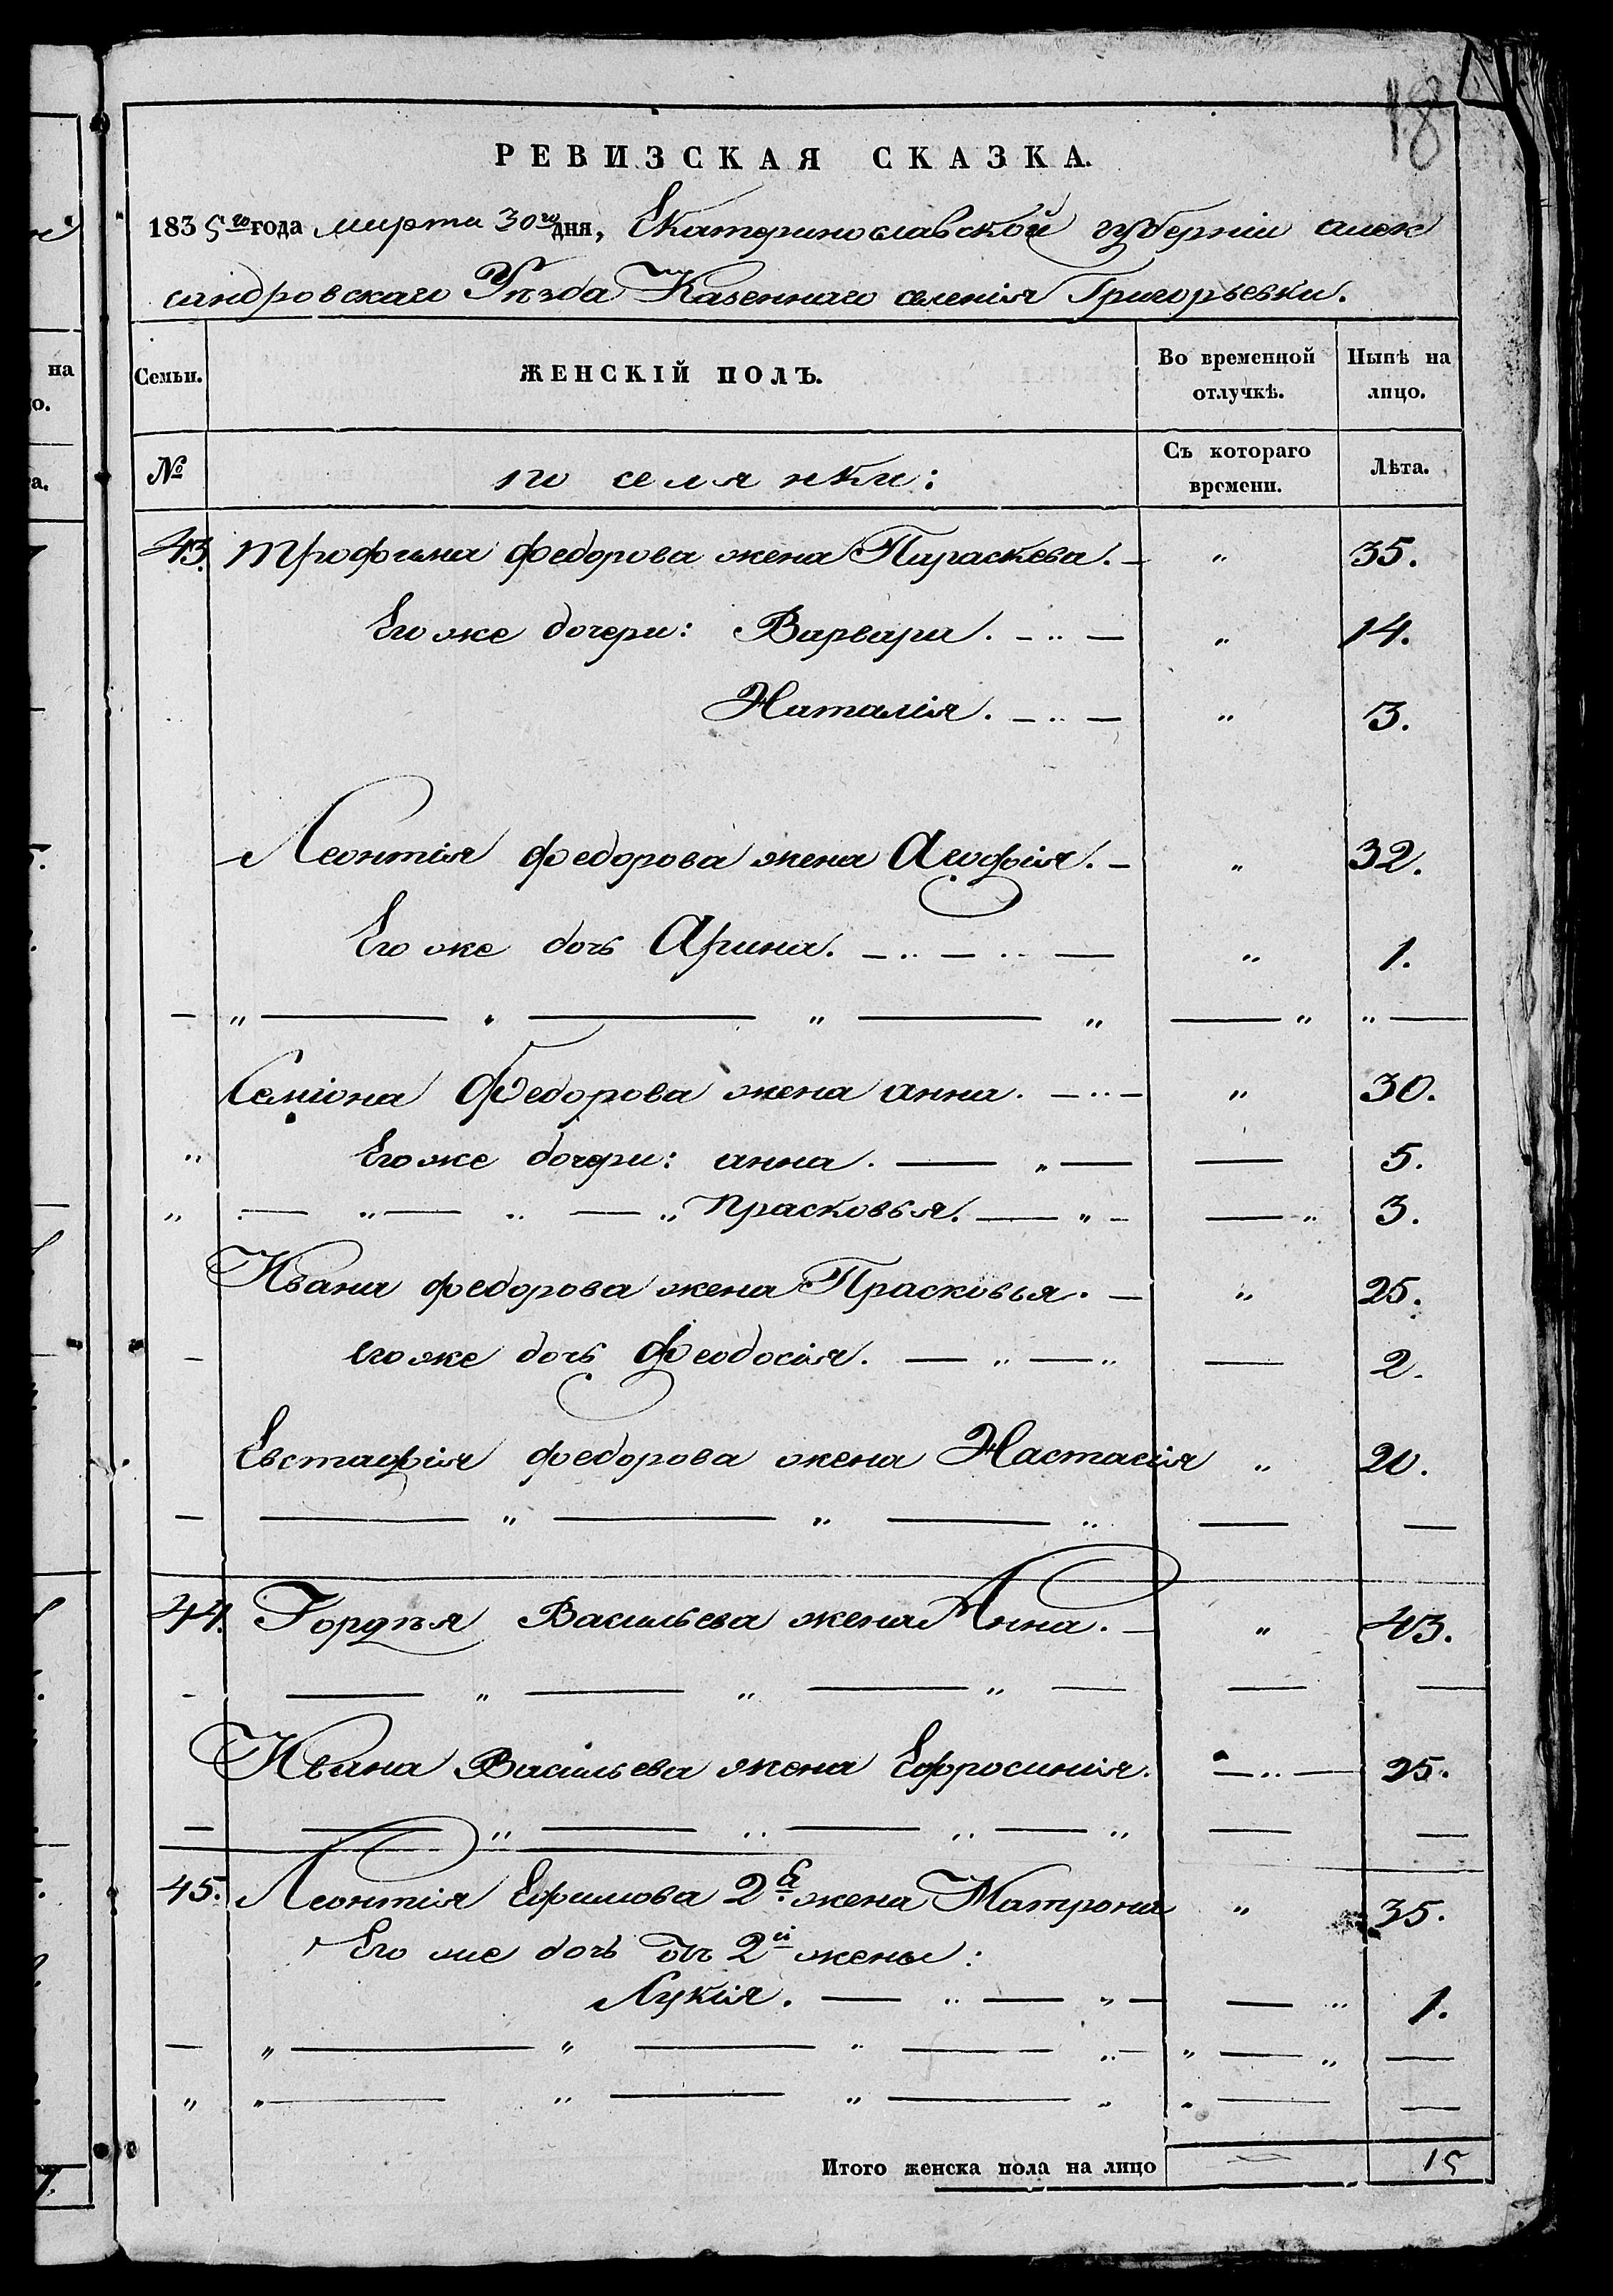 18
РЕВИЗСКАЯ СКАЗКА.
1835го года марта 30го дня, Екатеринославской губерніи алек
сандровскаго Уѣзда Казеннаго селенія Григорьевки.
Семьи. ЖЕНСКІЙ ПОЛЪ. Во временной отлучкѣ. Нынѣ на лицо.
№ поселянки: Съ котораго времени. Лѣта.
43. трофима федорова жена Параскева. — „ 35.
Его же дочери: Варвара. — .. — „ 14.
Наталія. — .. — „ 3.
Леонтія федорова жена Агофія. — „ 32.
Его же дочь Арина. — .. — .. — „ 1.
Семіона Федорова жена анна. — .. — „ 30.
„ Его же дочери: анна. — „ — — 5.
„ — „ — „ — „ прасковья. — „ — — „ 3.
Ивана федорова жена Прасковья. — „ 25.
— его же дочь Феодосія. — „ — „ — 2.
Евстафія федорова жена Настасія „ 20.
44. Гордѣя Васильева жена Анна. — „ 43.
Ивана Васильева жена Ефросинія. — .. — 25.
45. Леонтія Ефимова 2я жена Матрона „ 35.
Его же дочь отъ 2й жены:
Лукія. — „ — „ — — „ 1.
Итого женска пола на лицо = 15
на
о.
а.